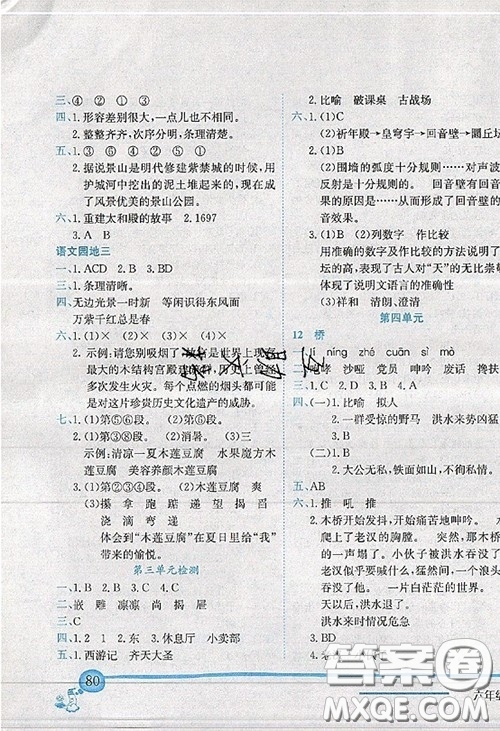 三、④ ② ① ③
四、1.形容差别很大,一点儿也不相同。
2.整整齐齐,次序分明,条理清楚。
五、1.③ ⑥ ④ ② ⑤ ①
2.据说景山是明代修建紫禁城的时候,用
护城河中挖出的泥土堆起来的,现在成
了风景优美的景山公园。
六、1.重建太和殿的故事 2.1697
3.A B
语文园地三
一、1.ACD 2.B 3.B 4.C
四、无边光景一时新 等闲识得东风面
万紫千红总是春
六、1.(1)× (2)× (3)× (4)×
2.示例:请您别吸烟了
最大的木结构宫殿
多次发生火灾。每个点燃的烟头都可能
是对这片珍贵历史文化遗产的威胁。
七、1.(1)第⑤⑥段。 (2)消暑。 (3)×
2.(1)第②③⑧段。
示例:清凉一夏木莲豆腐 水果魔方木
莲豆腐 美容养颜木莲豆腐
3.(1)第②③④段。 (2)木莲豆腐 爽
(3)摸 拿 跑 踮 递 望 揭 舀
浇 滴 弯 递
体会到“木莲豆腐在夏日里给“我”
带来的愉悦。
第三单元检测
一、1.B 2.B 3.C 4.C
二、嵌 雕 凛凛 尚 揭 屉
三、C
四、1.2 1 2.东 3.休息厅 小卖部
五、1.西游记 齐天大圣
80
3.(1)B
2.比喻 破课桌 古战场
六、1.(1)C
(2)祈年殿→皇穹宇→回音壁→圜丘坛
2.(1)B
(2)围墙的弧度十分规则
是十分规则 回音壁有回音
果的原因是……由于 回音壁
音效果。
3.(1)B (2)列数字 作比较
用准确的数字及作比较的方法说明了
坛的高大,表现了古人对“天”的无比崇
体现了说明文语言的准确性
(3)祥和 清朗、澄清
第四单元
12 桥
一、lì níng zhé cuān sì mò
咆哮 沙哑 党员 呻吟 废话 搀扶
三、1.A 2.C 3.B
四、(一)1.比喻 拟人
2.一群受惊的野马 洪水来势凶猛
(二)1.B
2.大公无私,铁面如山,不徇私情。
五、AB
六、1.推 吼 推
2.木桥开始发抖,开始痛苦地呻吟。
爬上了老汉的胸膛。 突然,木桥
的一声塌了。小伙子被洪水吞没了
老汉似乎要喊什么,猛然间,一个浪
也吞没了他。 一片白茫茫的世界。
天以后,洪水退了。
洪水来时情况危急
3.BD
答案圈
MXQE.COM
六年级